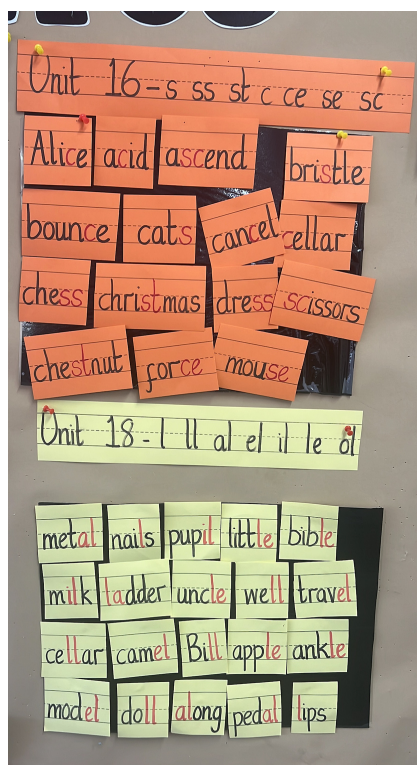 Unit 16 - s ss st c ce se sc
Alice acid ascend bristle
bounce cats cancel cellar
chess christmas dress scissors
chestnut force mouse
Unit 18 - l ll al el il le ol
metal nails pupil little bible
milk ladder uncle well travel
cellar camel Bill apple ankle
model doll along pedal lips